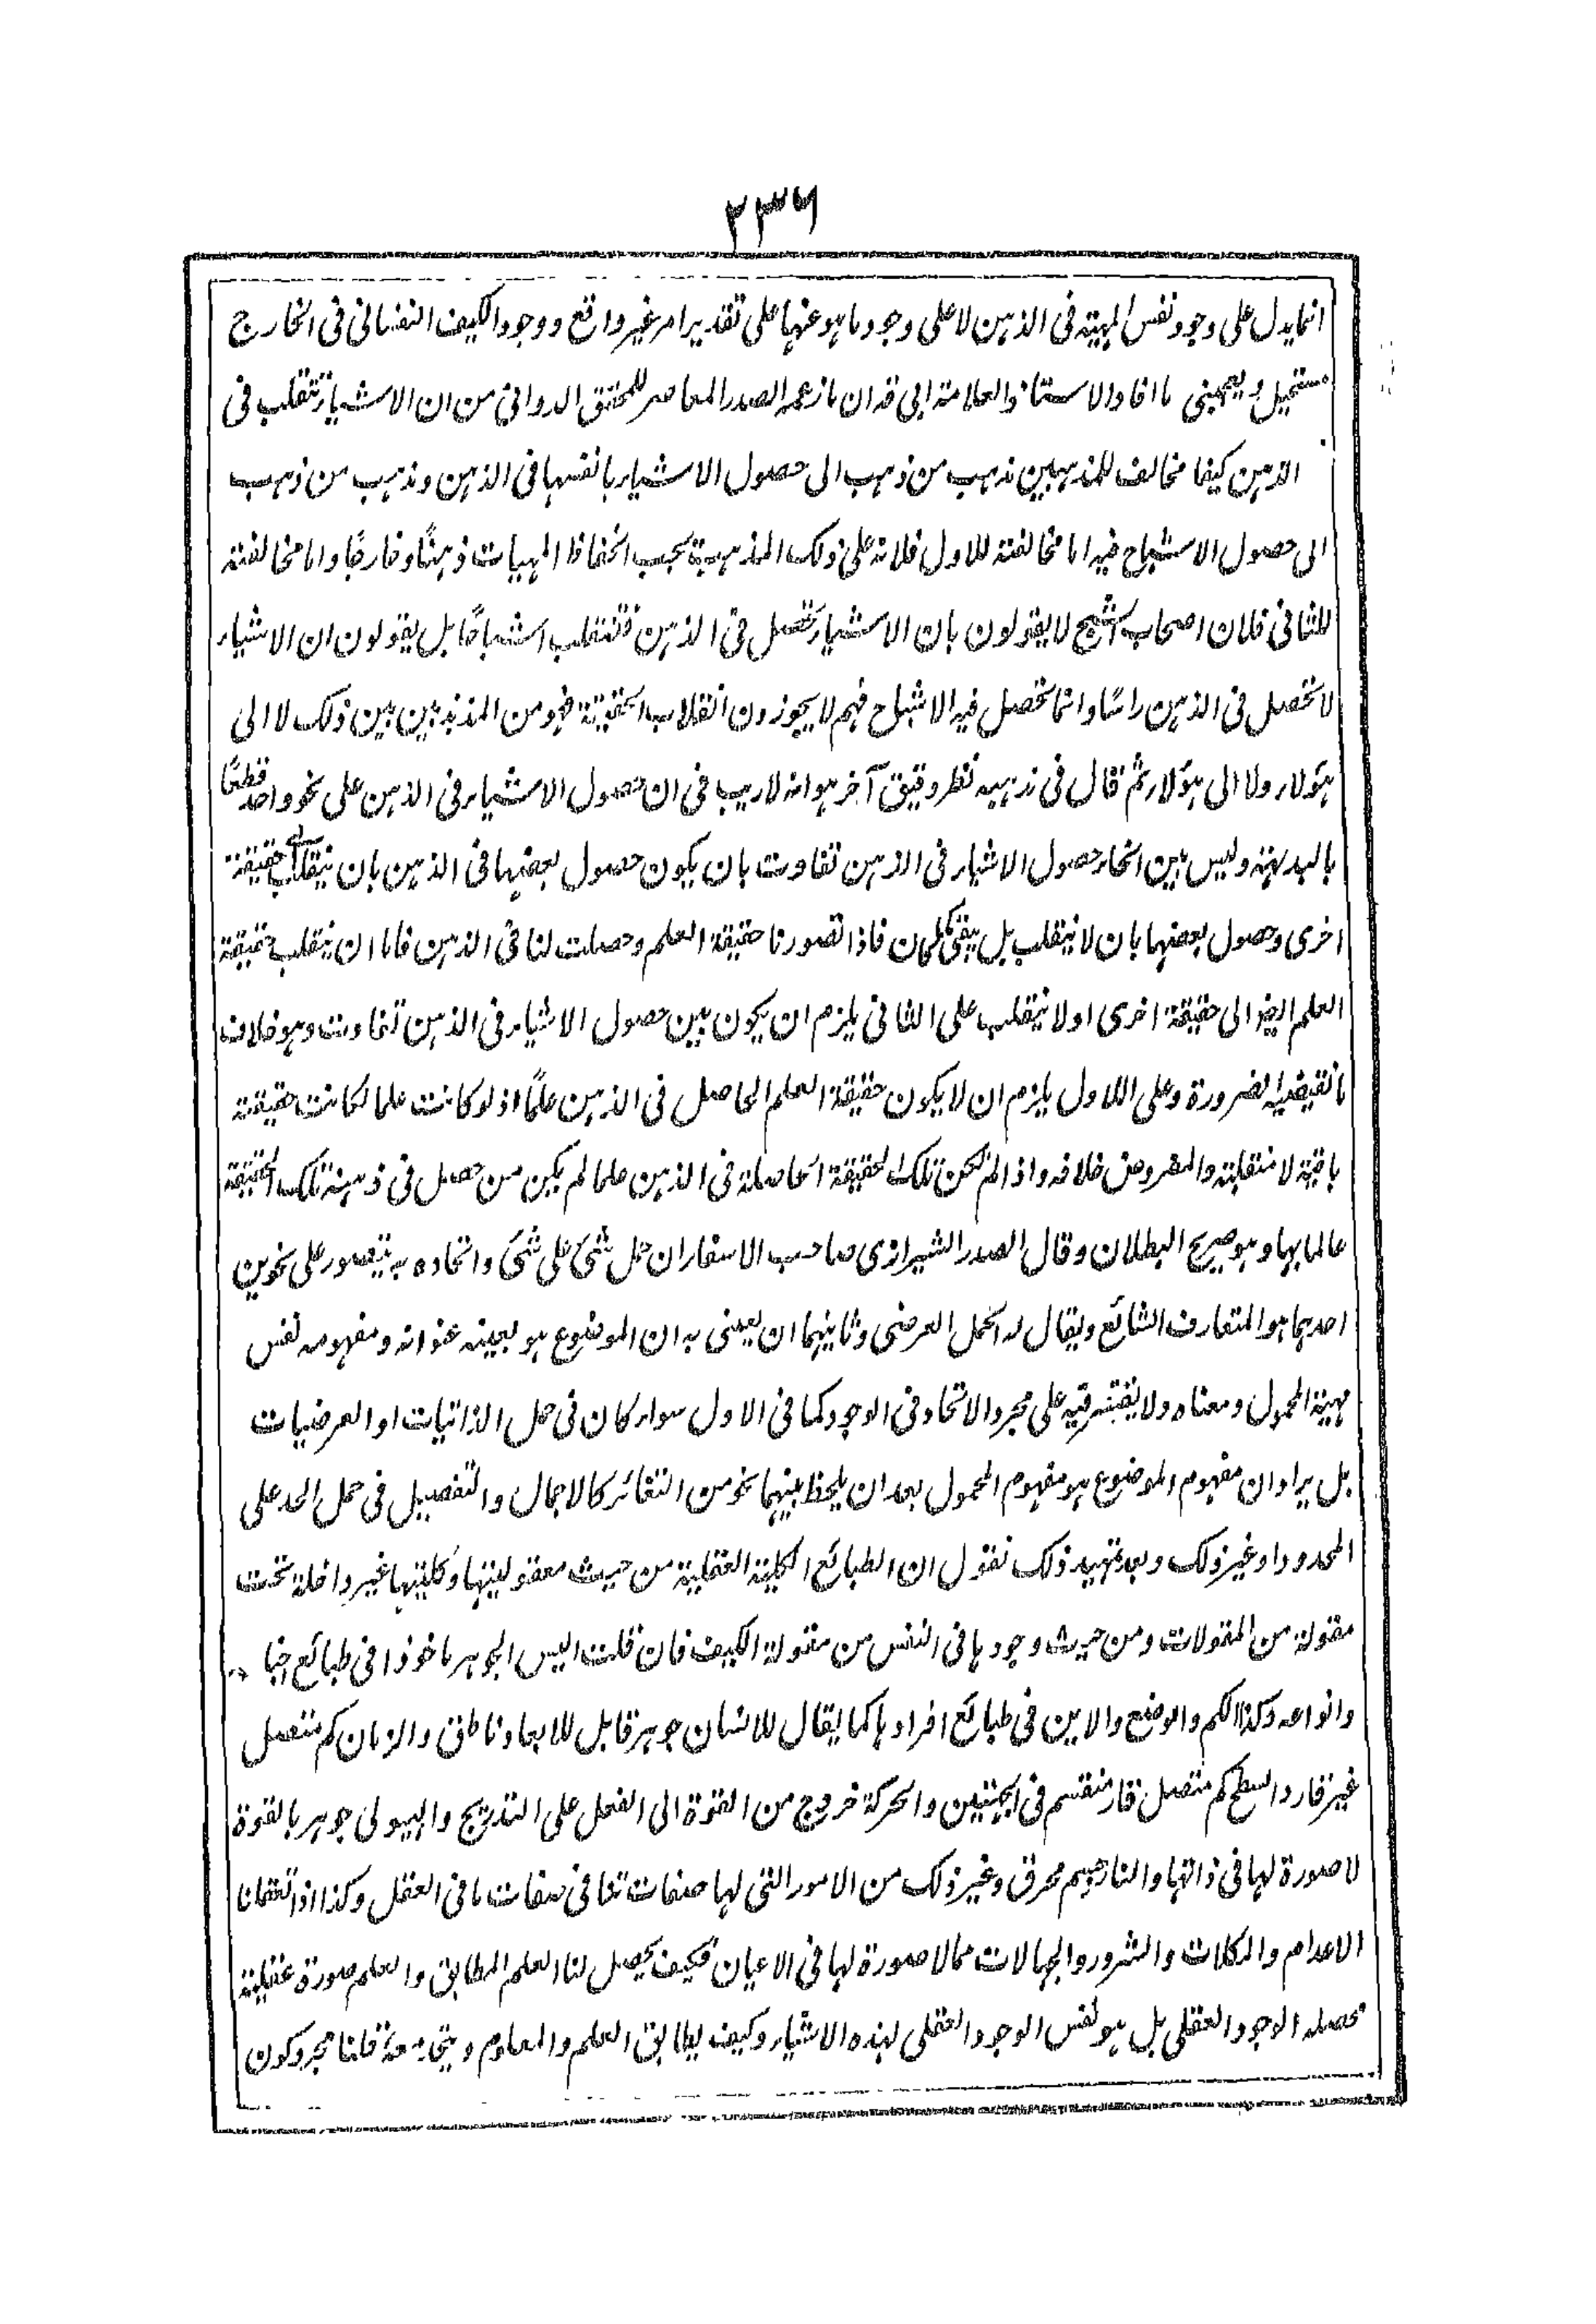 ٢٣٦
انما يدل على وجود نفس المهية فى الذهن لا على وجود ما هو عنها على تقدير امر غير واقع ووجود الكيف النفسانى فى الخارج
مستحيل ويعجبنى ما افاد الاستاذ العلامة ابى قد ان ما زعمه الصدر المعاصر للمحقق الدوانى من ان الاشياء تنقلب فى
الذهن كيفا مخالف للمذهبين مذهب من ذهب الى حصول الاشياء بانفسها فى الذهن ومذهب من ذهب
الى حصول الاشباح فيه اما مخالفته للاول فلانه على ذلك المذهب يجب انحفاظ المهيات ذهنًا وخارجًا واما مخالفته
للثانى فلان اصحاب الشبح لا يقولون بان الاشياء تحصل فى الذهن فتنقلب اشباحًا بل يقولون ان الاشياء
لا تحصل فى الذهن راسًا وانما تحصل فيه الاشباح فهم لا يجوزون انقلاب الحقيقة فهو من المذبذبين بين ذلك لا الى
هؤلاء ولا الى هؤلاء ثم قال فى مذهبه نظر دقيق آخر هو انه لا ريب فى ان حصول الاشياء فى الذهن على نحو واحد قطعًا
بالبديهة وليس بين انحاء حصول الاشياء فى الذهن تفاوت بان يكون حصول بعضها فى الذهن بان ينقلب الى حقيقة
اخرى وحصول بعضها بان لا ينقلب بل يبقى كما كان فاذا تصورنا حقيقة العلم وحصلت لنا فى الذهن فاما ان ينقلب حقيقة
العلم ايضا الى حقيقة اخرى او لا ينقلب على الثانى يلزم ان يكون بين حصول الاشياء فى الذهن تفاوت وهو خلاف
ما تقتضيه الضرورة وعلى الاول يلزم ان لا يكون حقيقة العلم الحاصل فى الذهن علمًا اذ لو كانت علما لكانت حقيقته
باقية لا منقلبة والمفروض خلافه واذا لم تكن تلك الحقيقة الحاصلة فى الذهن علما لم يكن من حصل فى ذهنه تلك الحقيقة
عالما بها وهو صريح البطلان وقال الصدر الشيرازى صاحب الاسفار ان حمل شئ على شئ واتحاده به يتصور على نحوين
احدهما هو المتعارف الشائع ويقال له الحمل العرضى وثانيهما ان يعنى به ان الموضوع هو بعينه عنوانه ومفهومه نفس
مهية المحمول ومعناه ولا يقتصر فيه على مجرد الاتحاد فى الوجود كما فى الاول سواء كان فى حمل الذاتيات او العرضيات
بل يراد ان مفهوم الموضوع هو مفهوم المحمول بعد ان يلحظ بينهما نحو من التغائر كالاجمال والتفصيل فى حمل الحد على
المحدود او غير ذلك وبعد تمهيد ذلك نقول ان الطبائع الكلية العقلية من حيث معقوليتها وكليتها غير داخلة تحت
مقولة من المقولات ومن حيث وجودها فى النفس من مقولة الكيف فان قلت اليس الجوهر ماخوذا فى طبائع اجنا
وانواعه وكذا الكم والوضع والاين فى طبائع افرادها كما يقال للانسان جوهر قابل للابعاد ناطق والزمان كم متصل
غير قار والسطح كم متصل قار منقسم فى الجهتين والحركة خروج من القوة الى الفعل على التدريج والهيولى جوهر بالقوة
لا صورة لها فى ذاتها والنار جسم محرق وغير ذلك من الامور التى لها صفات تنافى صفات ما فى العقل وكذا اذا تعقلنا
الاعدام والملكات والشرور والجهالات مما لا صورة لها فى الاعيان فكيف يحصل لنا العلم المطابق والعلم صورة عقلية
محصله الوجود العقلى بل هو نفس الوجود العقلى لهذه الاشياء وكيف يطابق العلم والمعلوم ويتحد معه قلنا مجرد كون